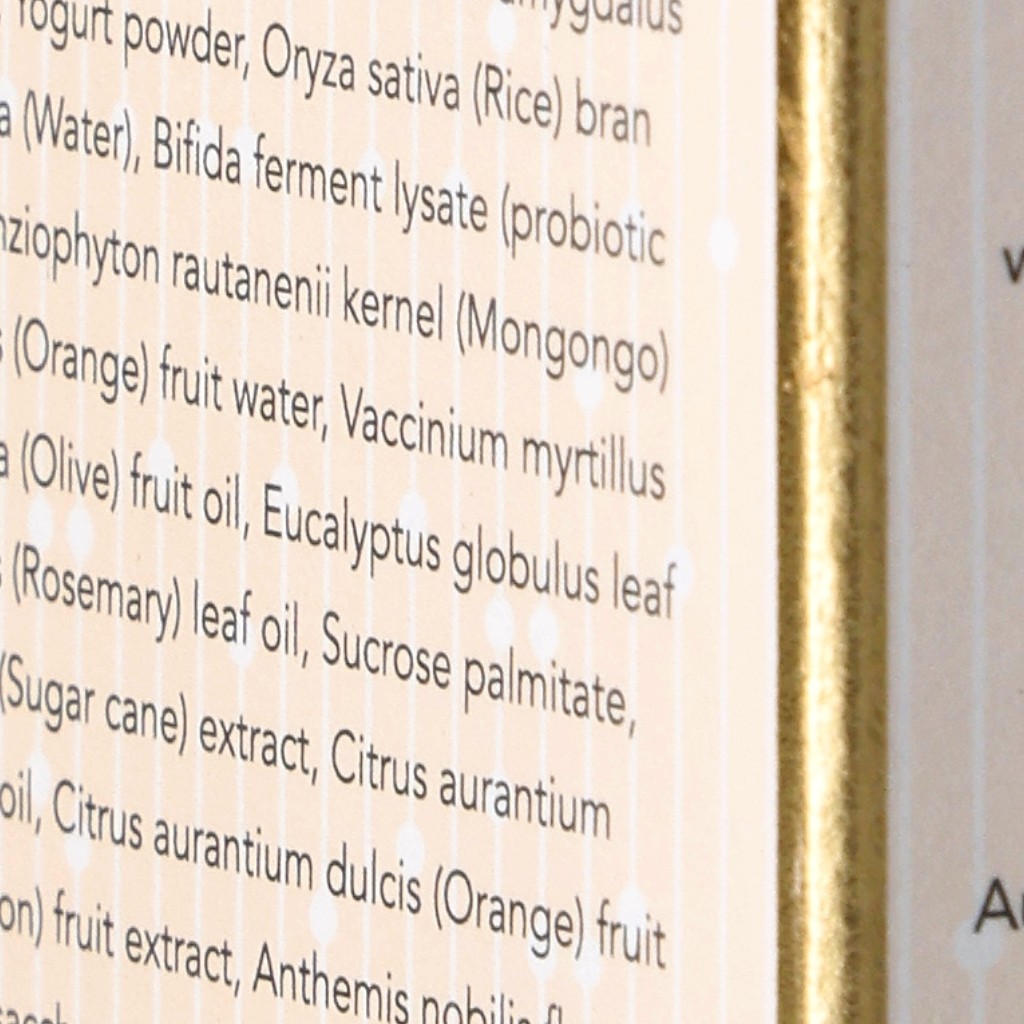 Yogurt powder, Oryza sativa (Rice) bran
(Water), Bifida ferment lysate (probiotic
rautanenii kernel (Mongongo)
(Orange) fruit water, Vaccinium myrtillus
(Olive) fruit oil, Eucalyptus globulus leaf
(Rosemary) leaf oil, Sucrose palmitate,
(Sugar cane) extract, Citrus aurantium
oil, Citrus aurantium dulcis (Orange) fruit
fruit extract, Anthemis nobilis